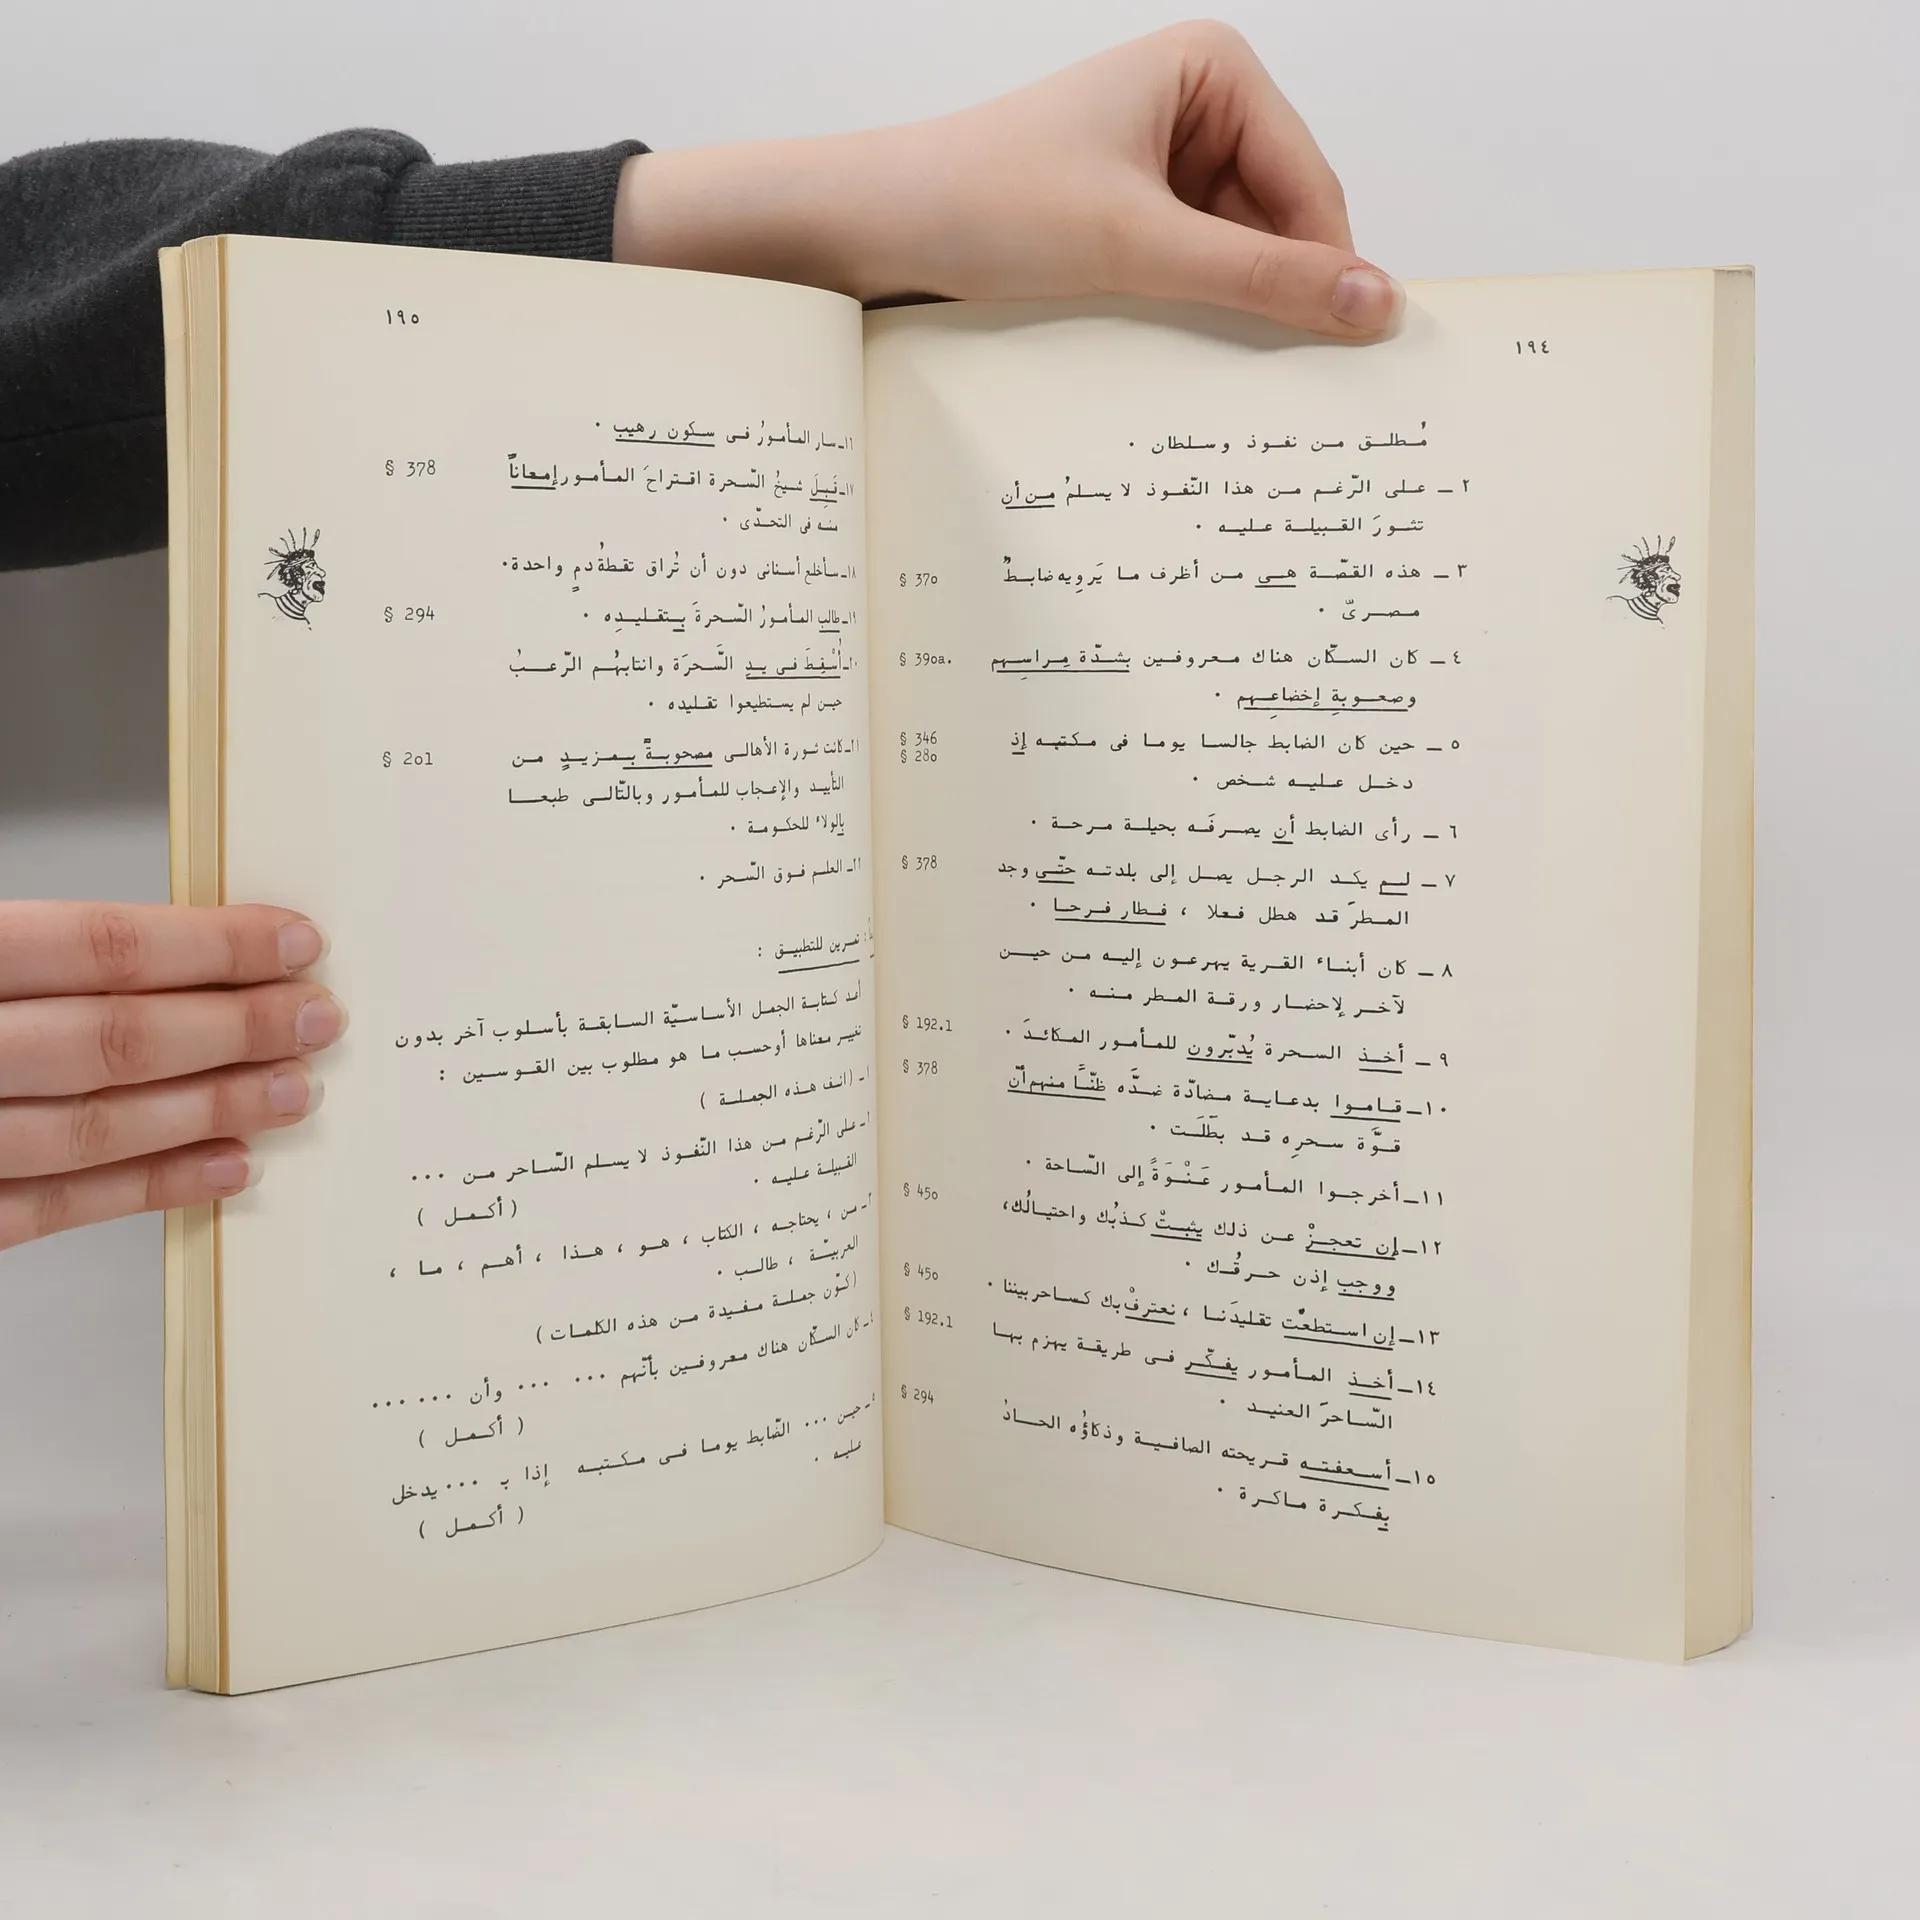 ١٩٤
مُطلق من نفوذ وسلطان .
٢ ـ على الرّغم من هذا النّفوذ لا يسلمُ من أن
تثورَ القبيلة عليه .
٣ ـ هذه القصّة هى من أظرف ما يَرويه ضابطٌ
§ 37o
مصرىّ .
٤ ـ كان السكّان هناك معروفين بشدّة مِراسِهم
§ 39oa.
وصعوبةِ إخضاعِهم .
٥ ـ حين كان الضابط جالسا يوما فى مكتبه إذ
§ 346
§ 28o
دخل عليه شخص .
٦ ـ رأى الضابط أن يصرفَه بحيلة مرحة .
٧ ـ لم يكد الرجل يصل إلى بلدته حتّى وجد
§ 378
المطرَ قد هطل فعلا ، فطار فرحا .
٨ ـ كان أبناء القرية يهرعون إليه من حين
لآخر لإحضار ورقة المطر منه .
٩ ـ أخذ السحرة يُدبّرون للمأمور المكائدَ .
§ 192.1
١٠ـ قاموا بدعاية مضادّة ضدَّه ظنّاً منهم أنّ
§ 378
قوَّة سحرِه قد بطَلَت .
١١ـ أخرجوا المأمور عَنْوَةً إلى السّاحة .
١٢ـ إن تعجزْ عن ذلك يثبتْ كذبُك واحتيالُك،
§ 45o
ووجب إذن حرقُك .
١٣ـ إن استطعتْ تقليدَنا ، نعترفْ بك كساحر بيننا .
§ 45o
١٤ـ أخذ المأمور يفكّر فى طريقة يهزم بها
§ 192.1
السّاحرَ العنيد .
١٥ـ أسعفته قريحته الصافية وذكاؤُه الحادُ
§ 294
بفكرة ماكرة .
١٩٥
سار المأمورُ فى سكون رهيب .
قَبِلَ شيخُ السّحرة اقتراحَ المأمور إمعاناً
§ 378
منه فى التحدّى .
سأخلع أسنانى دون أن تُراق نقطةُ دمٍ واحدة.
طالب المأمورُ السّحرةَ بتقليدِه .
§ 294
أُسْقِطَ فى يدِ السَّحرَة وانتابهُم الرّعبُ
حين لم يستطيعوا تقليده .
كانت ثورة الأهالى مصحوبةً بمزيدٍ من
§ 2o1
التأييد والإعجاب للمأمور وبالتّالى طبعا
بالولاء للحكومة .
العلم فوق السّحر .
تمرين للتطبيق :
أعد كتابة الجمل الأساسيّة السابقة بأسلوب آخر بدون
تغيير معناها أوحسب ما هو مطلوب بين القوسين :
(انف هذه الجملة )
على الرّغم من هذا النّفوذ لا يسلم السّاحر من ...
القبيلة عليه .
( أكمل )
من ، يحتاجه ، الكتاب ، هو ، هذا ، أهم ، ما ،
العربيّة ، طالب .
(كوّن جملة مفيدة من هذه الكلمات )
كان السكّان هناك معروفين بأنّهم ... ... وأن ... ...
( أكمل )
حين ... الضّابط يوما فى مكتبه إذا بـ ... يدخل
عليه .
( أكمل )